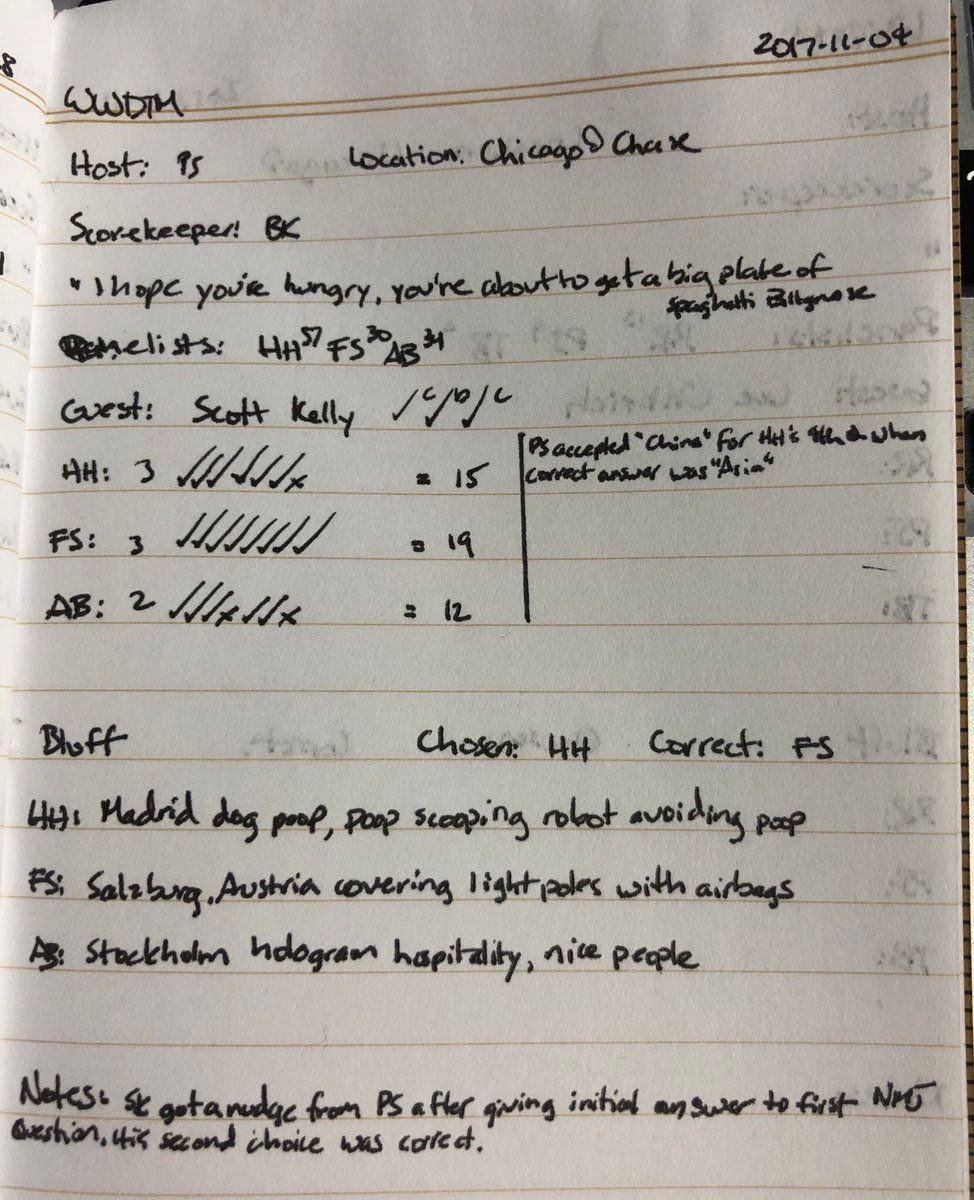 2017-11-04
WWDTM
Host: PS Location: Chicago Chase
Scorekeeper: BK
"I hope you're hungry, you're about to get a big plate of
spaghetti Billgnese
Panelists: HH 57 FS 30 AB 34
Guest: Scott Kelly ✓c ✓b ✓c
PS accepted "China" for HH's 4th when
HH: 3 ✓✓✓✓✓✓x = 15
correct answer was "Asia"
FS: 3 ✓✓✓✓✓✓✓✓ = 19
AB: 2 ✓✓✓x✓✓x = 12
Bluff Chosen: HH Correct: FS
HH: Madrid dog poop, poop scooping robot avoiding poop
FS: Salzburg, Austria covering light poles with airbags
AB: Stockholm hologram hospitality, nice people
Notes: SK got a nudge from PS after giving initial answer to first NMJ
question. His second choice was correct.